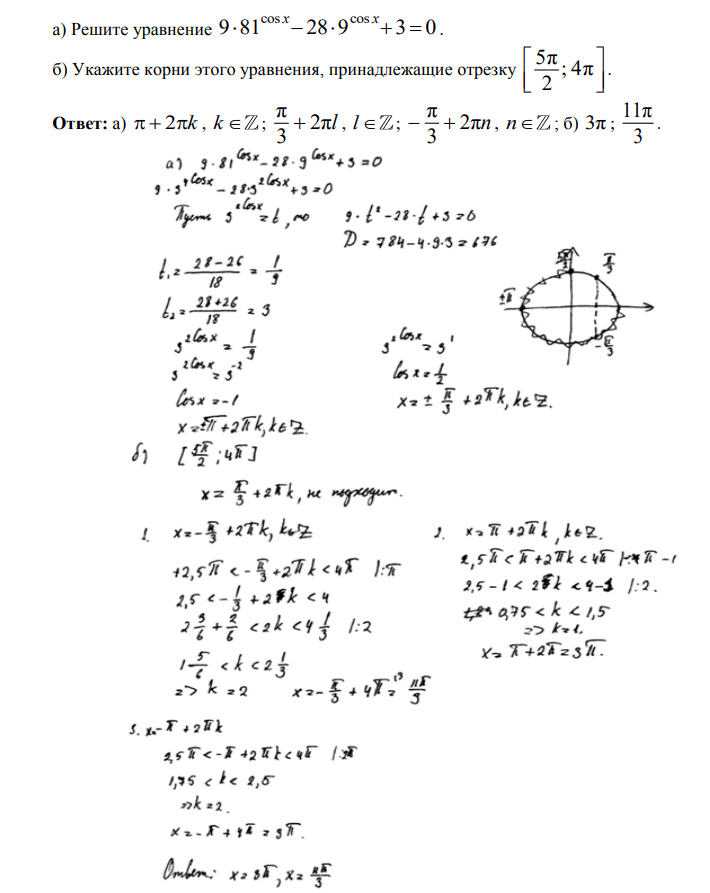 а) Решите уравнение 9·81^(cos x) − 28·9^(cos x) + 3 = 0.
б) Укажите корни этого уравнения, принадлежащие отрезку [5π/2; 4π].
Ответ: а) π + 2πk, k ∈ ℤ; π/3 + 2πl, l ∈ ℤ; −π/3 + 2πn, n ∈ ℤ; б) 3π; 11π/3.
а) 9·81^(cos x) − 28·9^(cos x) + 3 = 0
9·3^(4cos x) − 28·3^(2cos x) + 3 = 0
Пусть 3^(2cos x) = t, то 9·t² − 28·t + 3 = 0
D = 784 − 4·9·3 = 676
t₁ = (28−26)/18 = 1/9
t₂ = (28+26)/18 = 3
3^(2cos x) = 1/9
3^(2cos x) = 3^(−2)
cos x = −1
x = ±π + 2πk, k ∈ Z.
3^(2cos x) = 3¹
cos x = 1/2
x = ± π/3 + 2πk, k ∈ Z.
5π/2
π/3
±π
−π/3
б) [5π/2 ; 4π]
x = π/3 + 2πk, не подходит.
1. x = −π/3 + 2πk, k ∈ Z
+2,5π < −π/3 + 2πk < 4π |:π
2,5 < −1/3 + 2k < 4
2 3/6 + 2/6 < 2k < 4 1/3 |:2
1 5/6 < k < 2 1/3
=> k = 2 x = −π/3 + 4π = 11π/3
2. x = π + 2πk, k ∈ Z.
2,5π < π + 2πk < 4π |:π −1
2,5 − 1 < 2k < 4 − 1 |:2.
0,75 < k < 1,5
=> k = 1.
x = π + 2π = 3π.
3. x = −π + 2πk
2,5π < −π + 2πk < 4π |:2π
1,75 < k < 2,5
=> k = 2.
x = −π + 4π = 3π.
Ответ: x = 3π, x = 11π/3